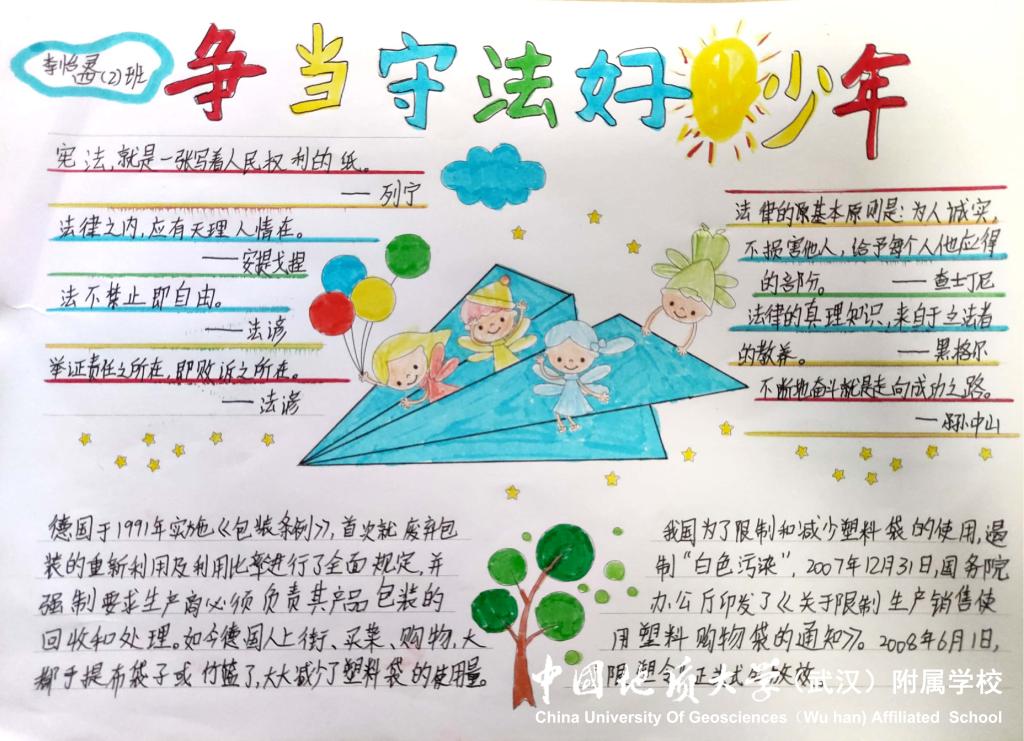 李怡灵(2)班
争当守法好少年
宪法,就是一张写着人民权利的纸。
——列宁
法律之内,应有天理人情在。
——安提戈捏
法不禁止即自由。
——法谚
举证责任之所在,即败诉之所在。
——法谚
法律的原基本原则是:为人诚实,
不损害他人,给予每个人他应得
的部份。——查士丁尼
法律的真理知识,来自于立法者
的教养。——黑格尔
不断地奋斗就是走向成功之路。
——孙中山
德国于1991年实施《包装条例》,首次就废弃包
装的重新利用及利用比率进行了全面规定,并
强制要求生产商必须负责其产品包装的
回收和处理。如今德国人上街、买菜、购物,大
都手提布袋子或竹篮了,大大减少了塑料袋的使用量。
我国为了限制和减少塑料袋的使用,遏
制“白色污染”,2007年12月31日,国务院
办公厅印发了《关于限制生产销售使
用塑料购物袋的通知》。2008年6月1日,
限塑令正式生效。
中国地质大学(武汉)附属学校
China University Of Geosciences (Wu han) Affiliated School